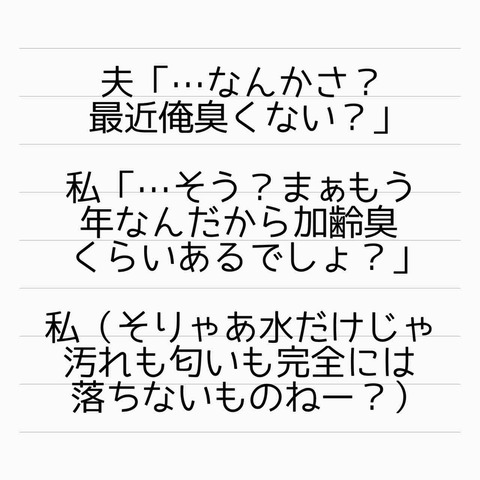 夫「…なんかさ？
最近俺臭くない？」
私「…そう？まぁもう
年なんだから加齢臭
くらいあるでしょ？」
私（そりゃあ水だけじゃ
汚れも匂いも完全には
落ちないものねー？）